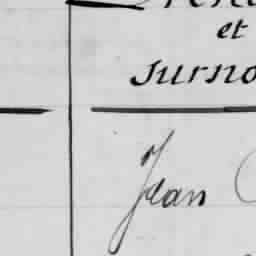 et
surno
Jean